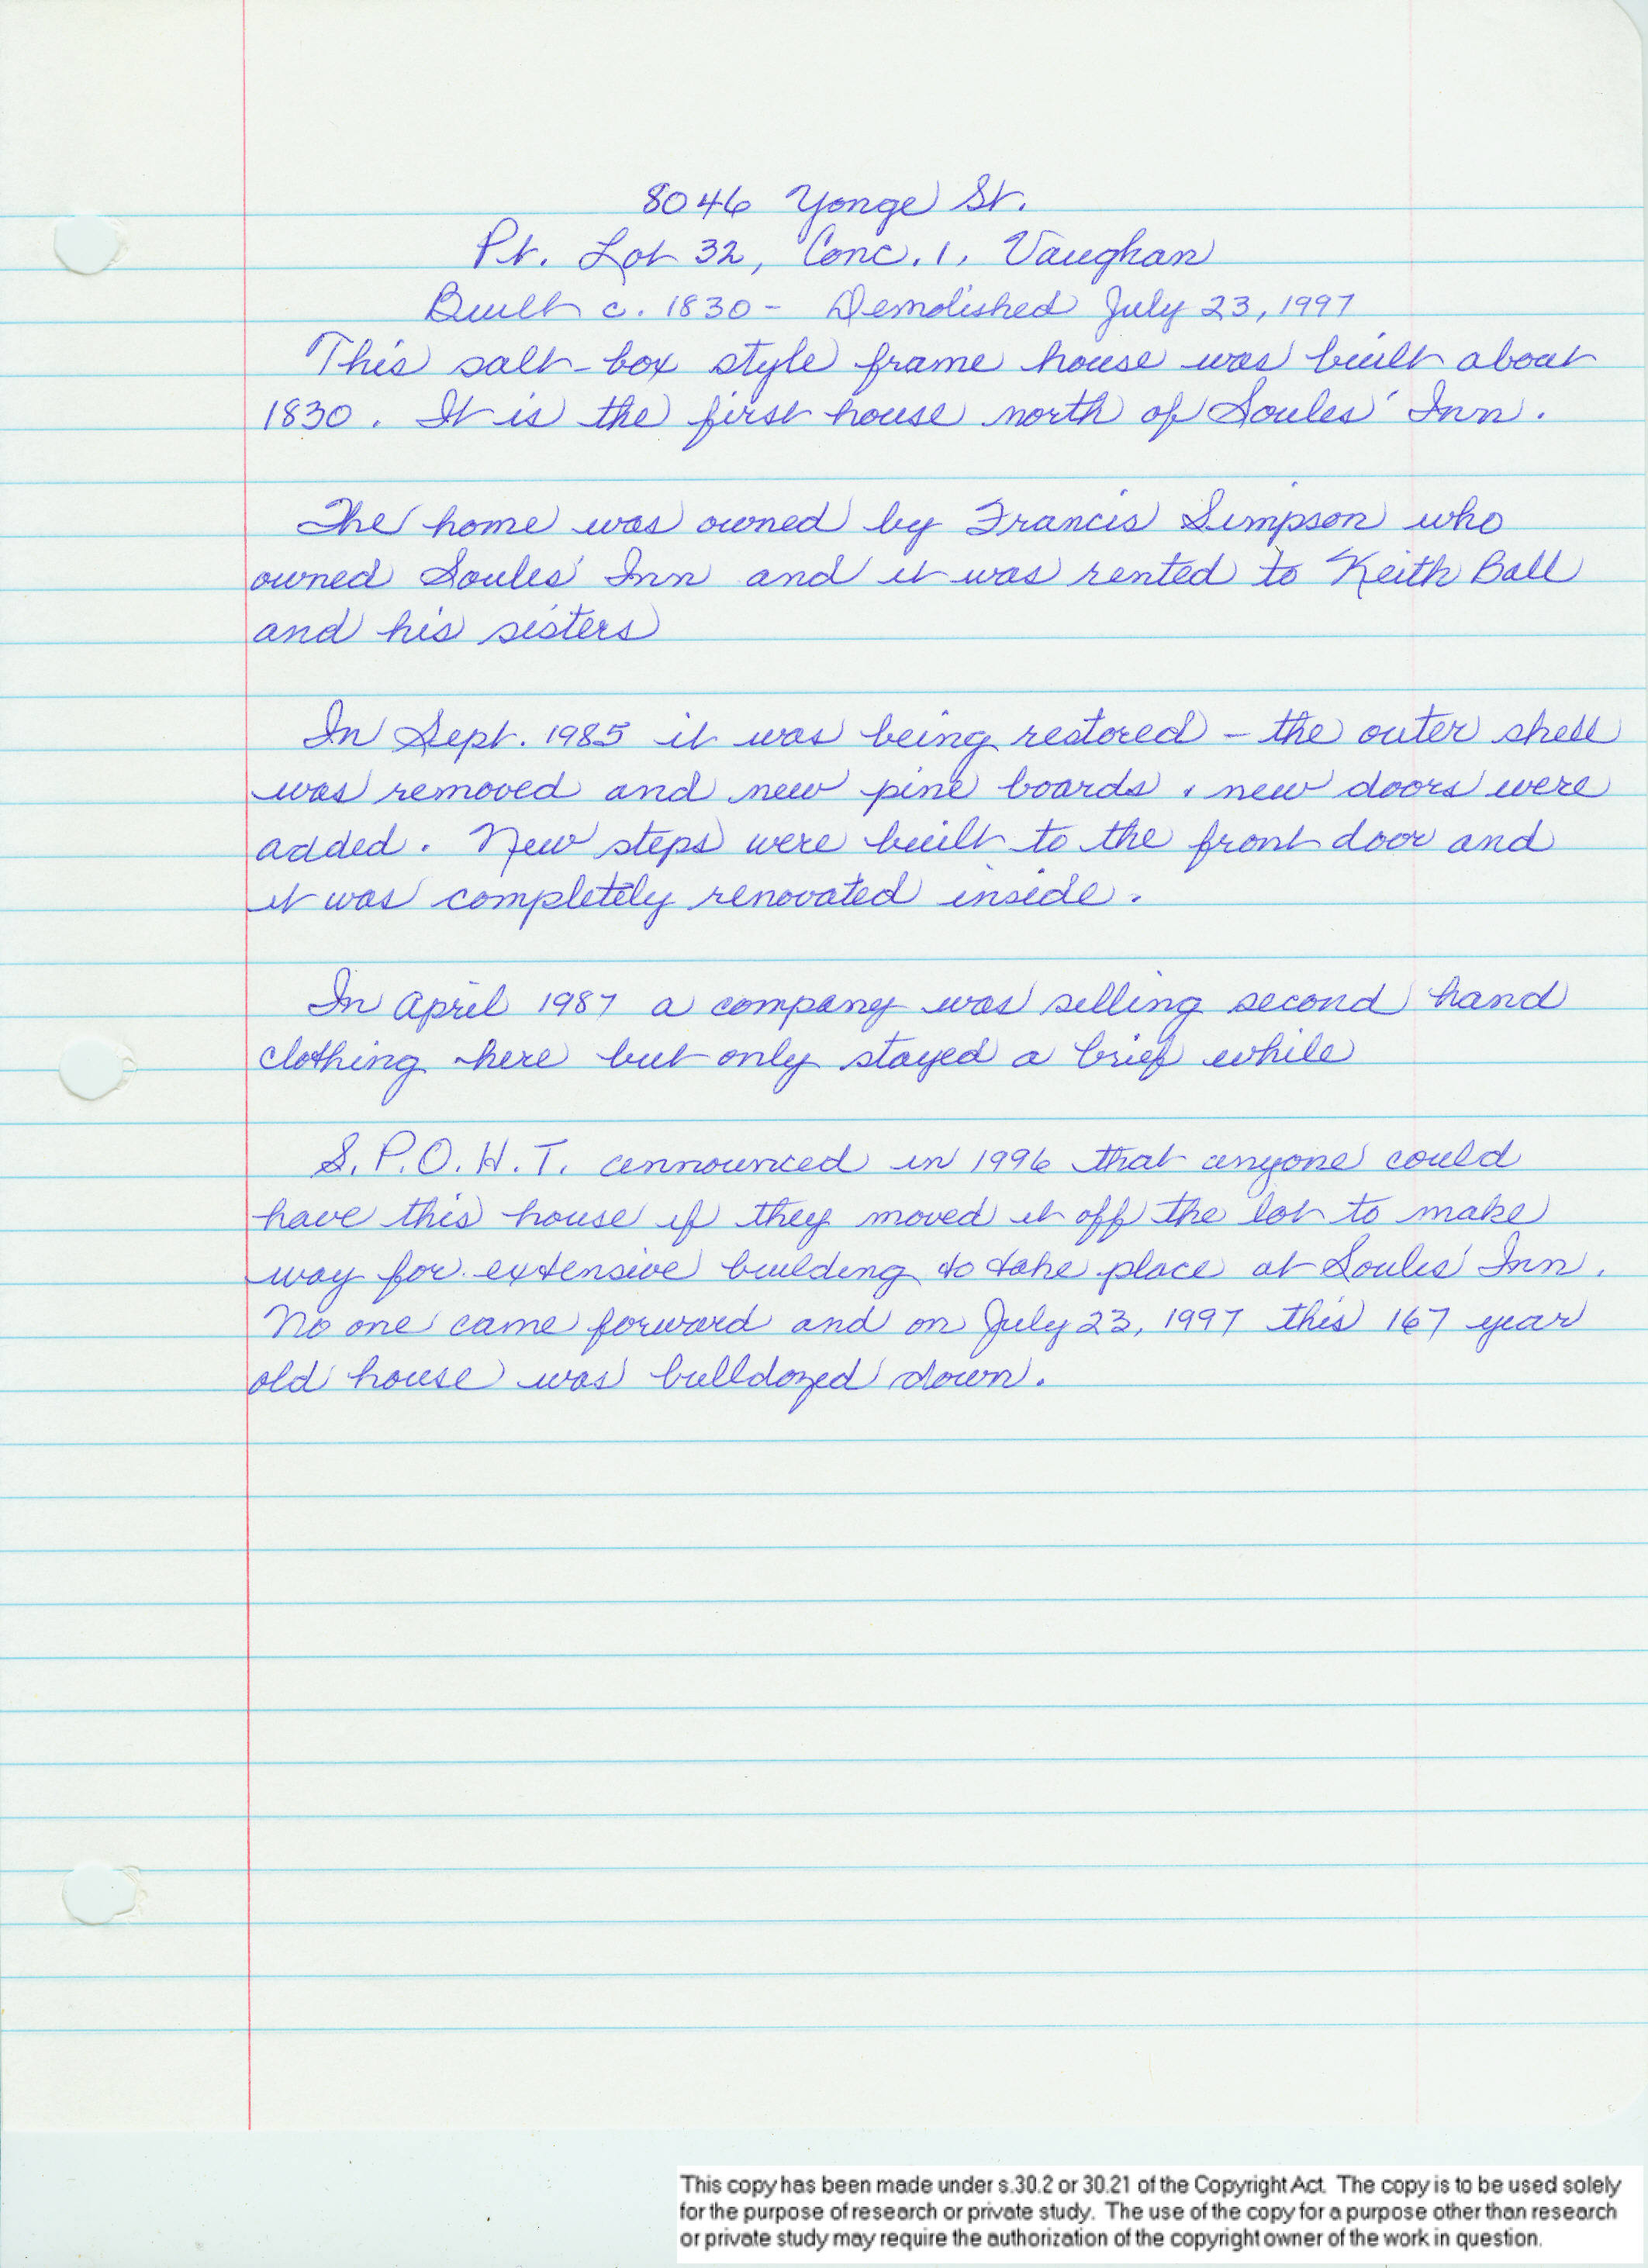 8046 Yonge St.
Pt. Lot 32, Conc. 1, Vaughan
Built c. 1830 - Demolished July 23, 1997
This salt-box style frame house was built about
1830. It is the first house north of Soules' Inn.
The home was owned by Francis Simpson who
owned Soules' Inn and it was rented to Keith Ball
and his sisters
In Sept. 1985 it was being restored - the outer shell
was removed and new pine boards & new doors were
added. New steps were built to the front door and
it was completely renovated inside.
In April 1987 a company was selling second hand
clothing here but only stayed a brief while
S.P.O.H.T. announced in 1996 that anyone could
have this house if they moved it off the lot to make
way for extensive building to take place at Soules' Inn.
No one came forward and on July 23, 1997 this 167 year
old house was bulldozed down.
This copy has been made under s.30.2 or 30.21 of the Copyright Act. The copy is to be used solely
for the purpose of research or private study. The use of the copy for a purpose other than research
or private study may require the authorization of the copyright owner of the work in question.